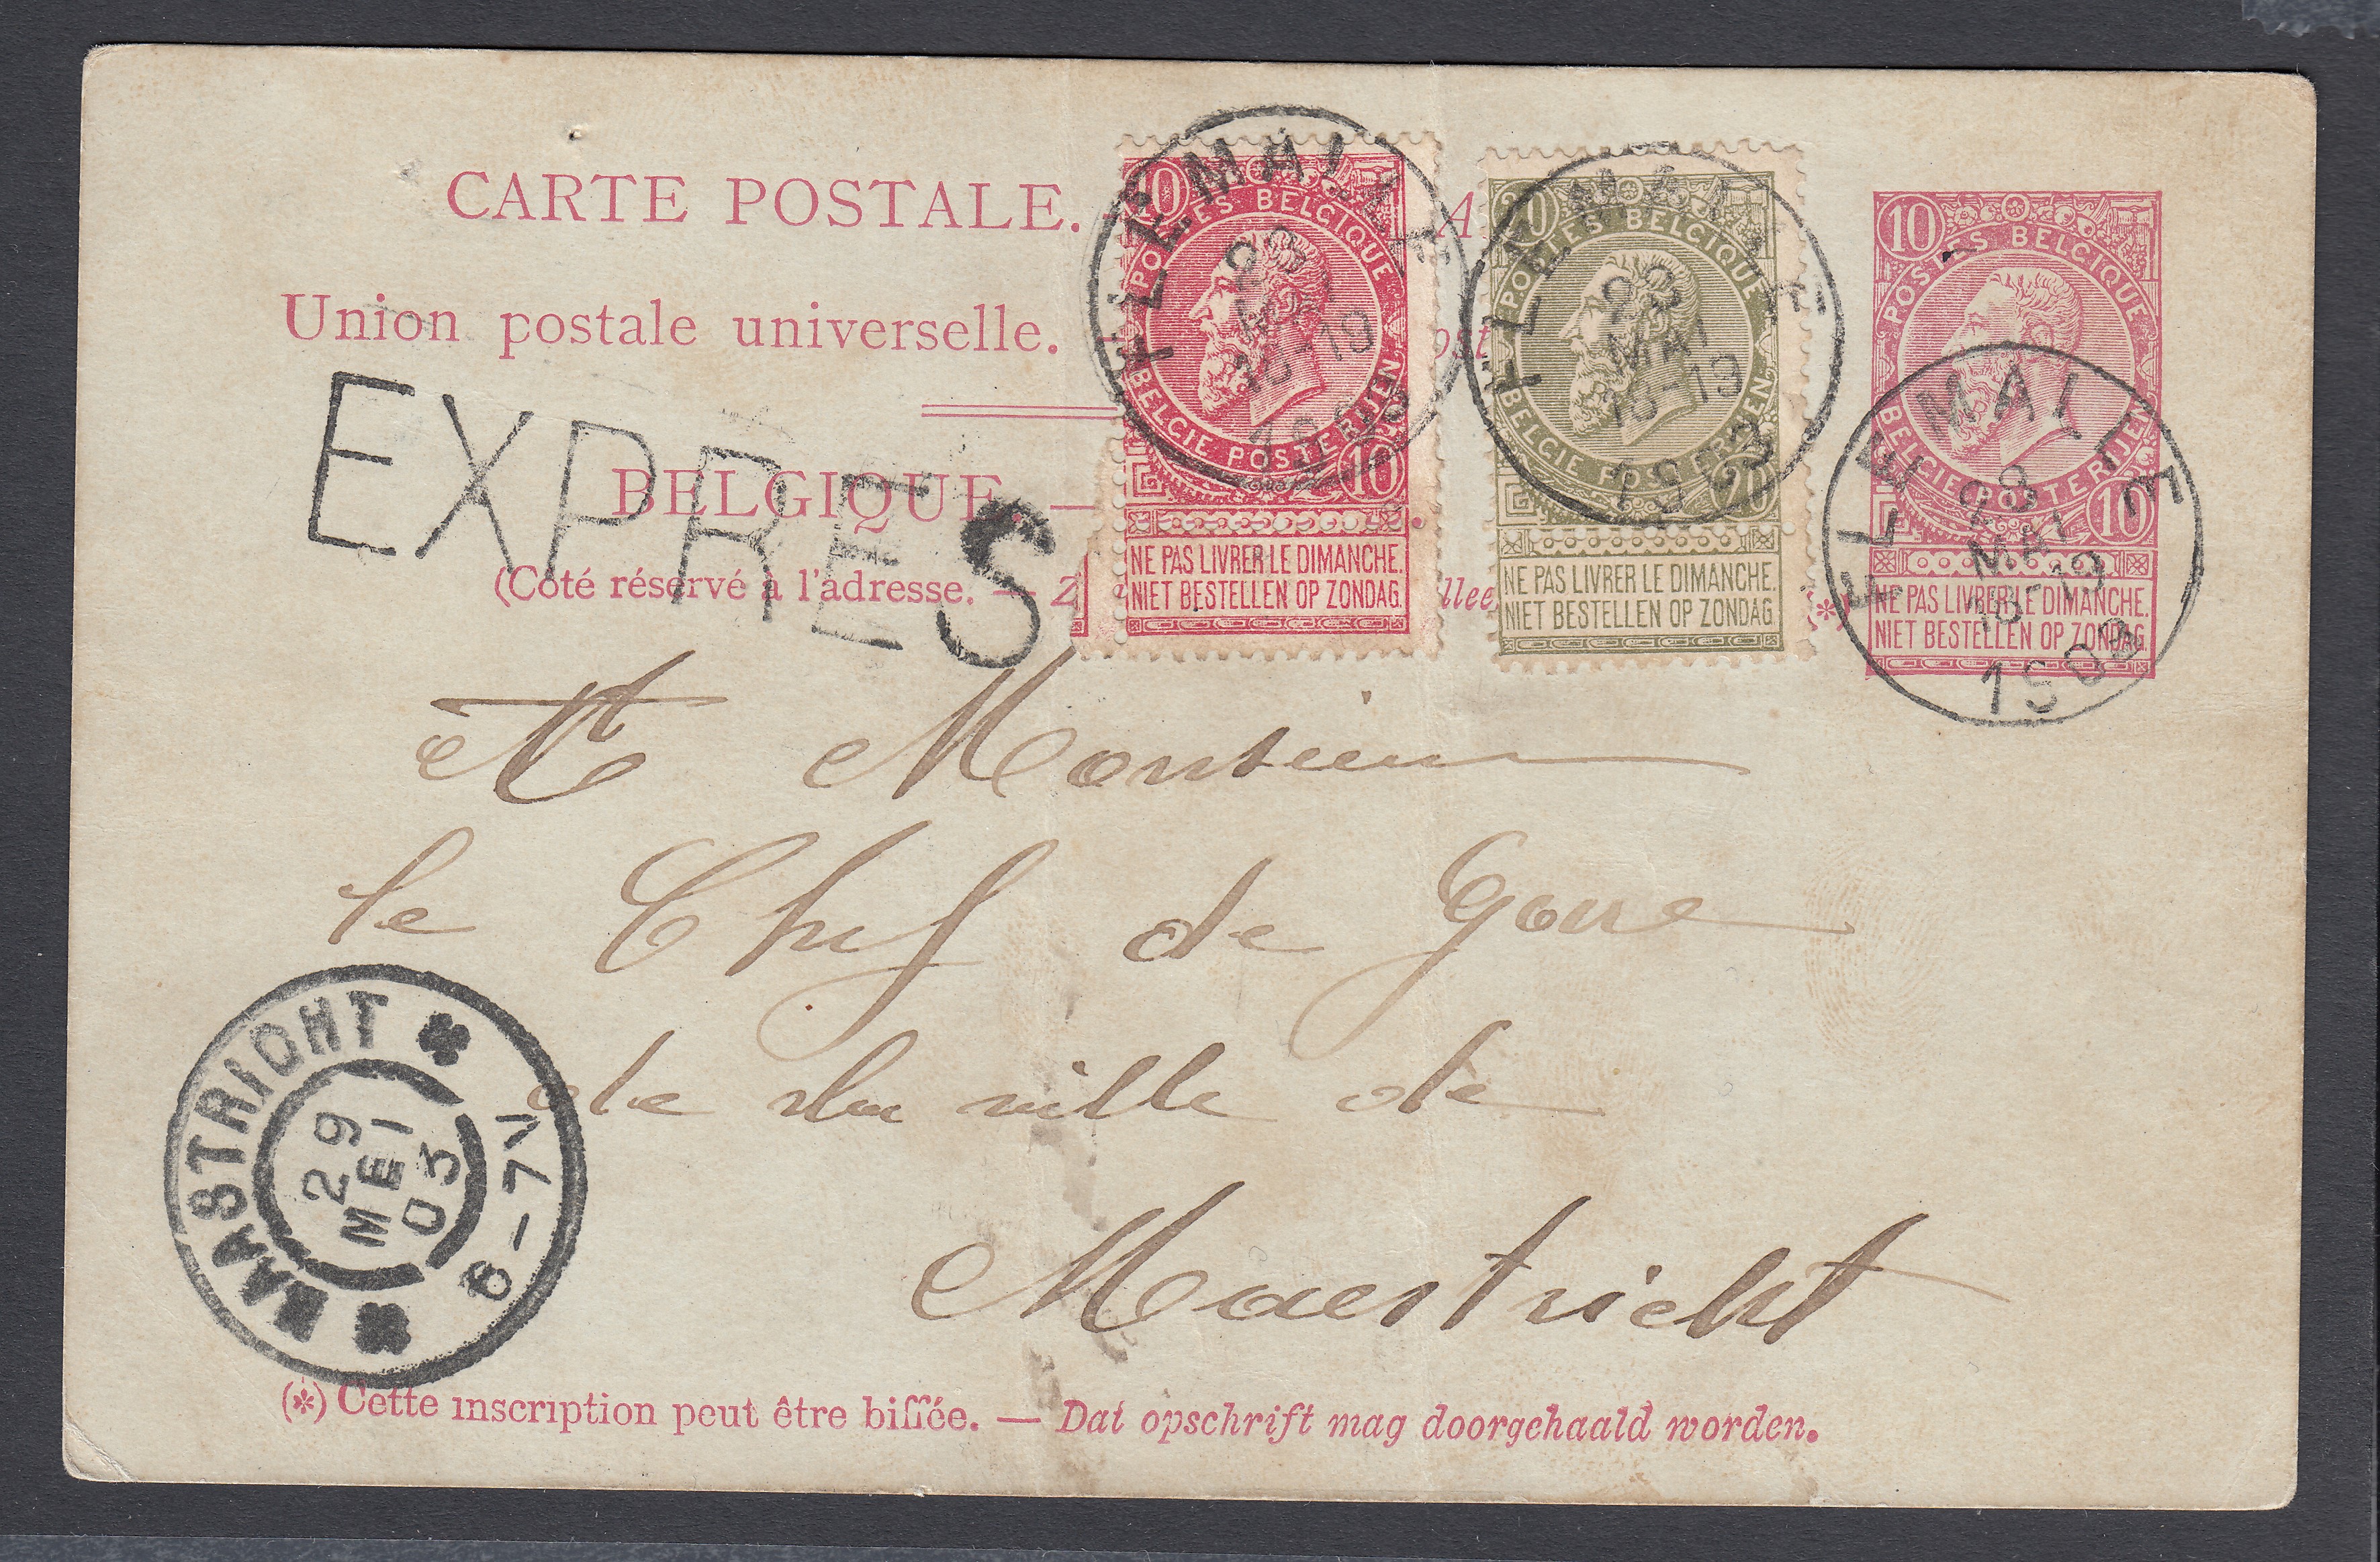 CARTE POSTALE.
Union postale universelle.
EXPRES
BELGIQUE. —
(Côté réservé à l'adresse. — Z
llee
*)
10 POSTES BELGIQUE
BELGIE POSTERIJEN 10
NE PAS LIVRER LE DIMANCHE.
NIET BESTELLEN OP ZONDAG.
FLEMALLE
MAI
18-19
1903
20 POSTES BELGIQUE
BELGIE POSTERIJEN 20
NE PAS LIVRER LE DIMANCHE.
NIET BESTELLEN OP ZONDAG
FLEMALLE
MAI
18-19
1903
10 POSTES BELGIQUE
BELGIE POSTERIJEN 10
NE PAS LIVRER LE DIMANCHE.
NIET BESTELLEN OP ZONDAG.
FLEMALLE
MAI
18-19
1903
A Monsieur
le Chef de Gare
de la ville de
Maestricht
MAASTRICHT
29
MEI
03
6-7V
(*) Cette inscription peut être biffée. — Dat opschrift mag doorgehaald worden.